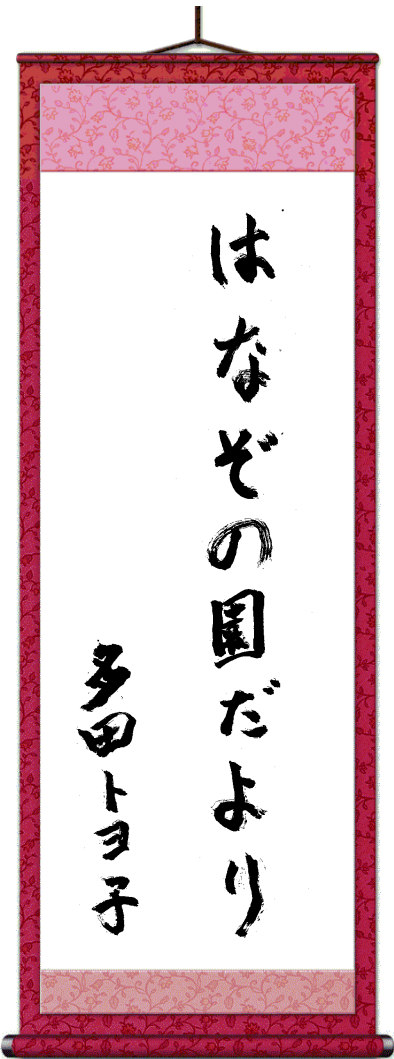 はなぞの園だより
多田トヨ子